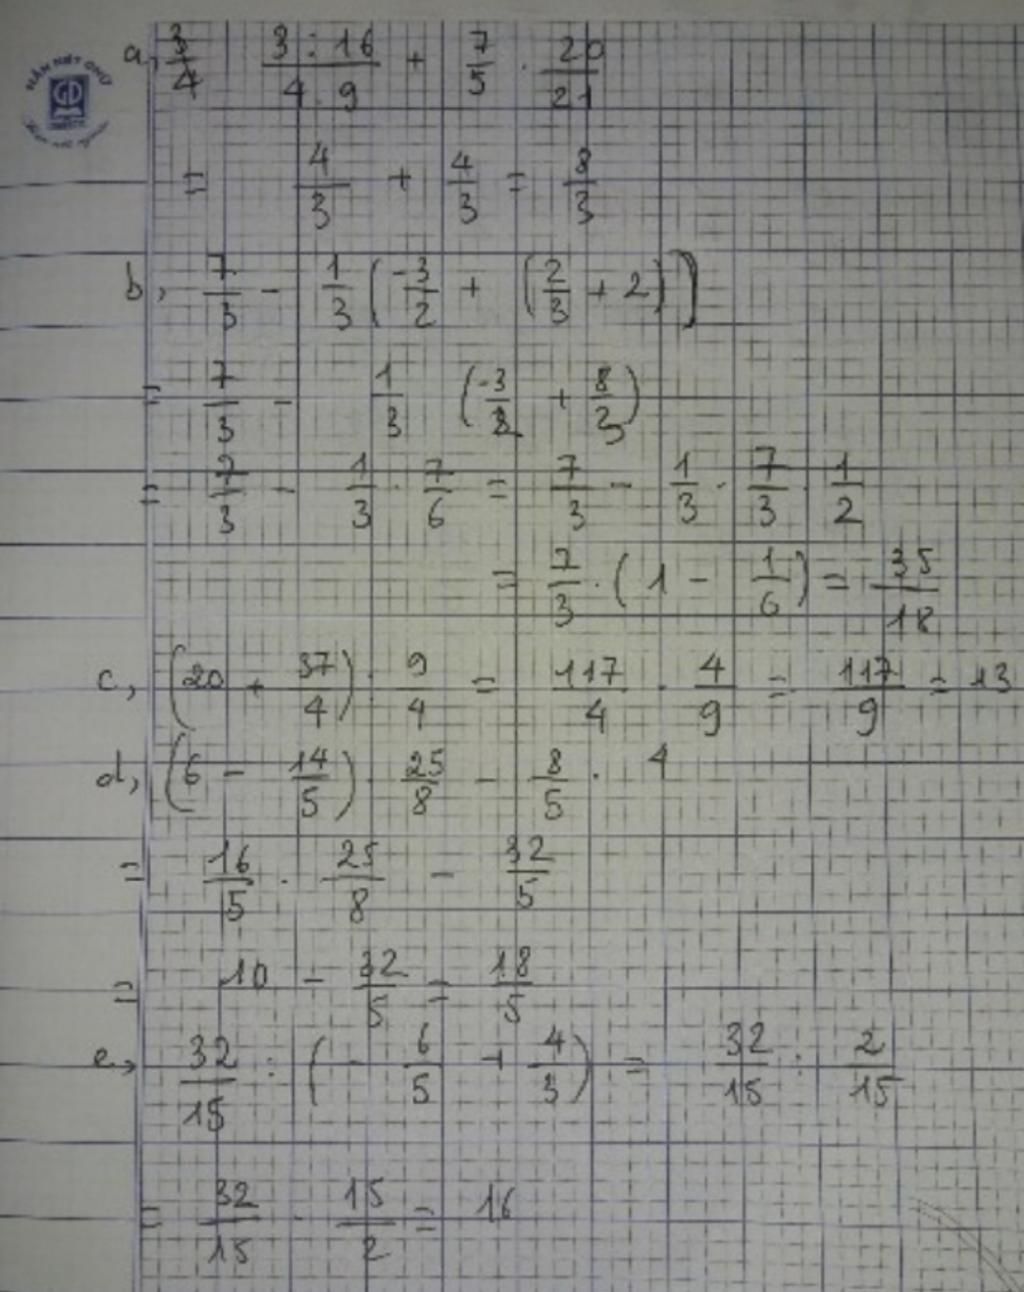 a, 3/4 (3 : 16)/(4 . 9) + 7/5 . 20/21
= 4/3 + 4/3 = 8/3
b, 7/3 - 1/3 (-3/2 + (2/3 + 2))
= 7/3 - 1/3 (-3/2 + 8/3)
= 7/3 - 1/3 . 7/6 = 7/3 - 1/3 . 7/3 . 1/2
= 7/3 . (1 - 1/6) = 35/18
c, (20 + 37/4) : 9/4 = 117/4 . 4/9 = 117/9 = 13
d, (6 - 14/5) . 25/8 - 8/5 . 4
= 16/5 . 25/8 - 32/5
= 10 - 32/5 = 18/5
e, 32/15 : (- 6/5 + 4/3) = 32/15 : 2/15
= 32/15 . 15/2 = 16